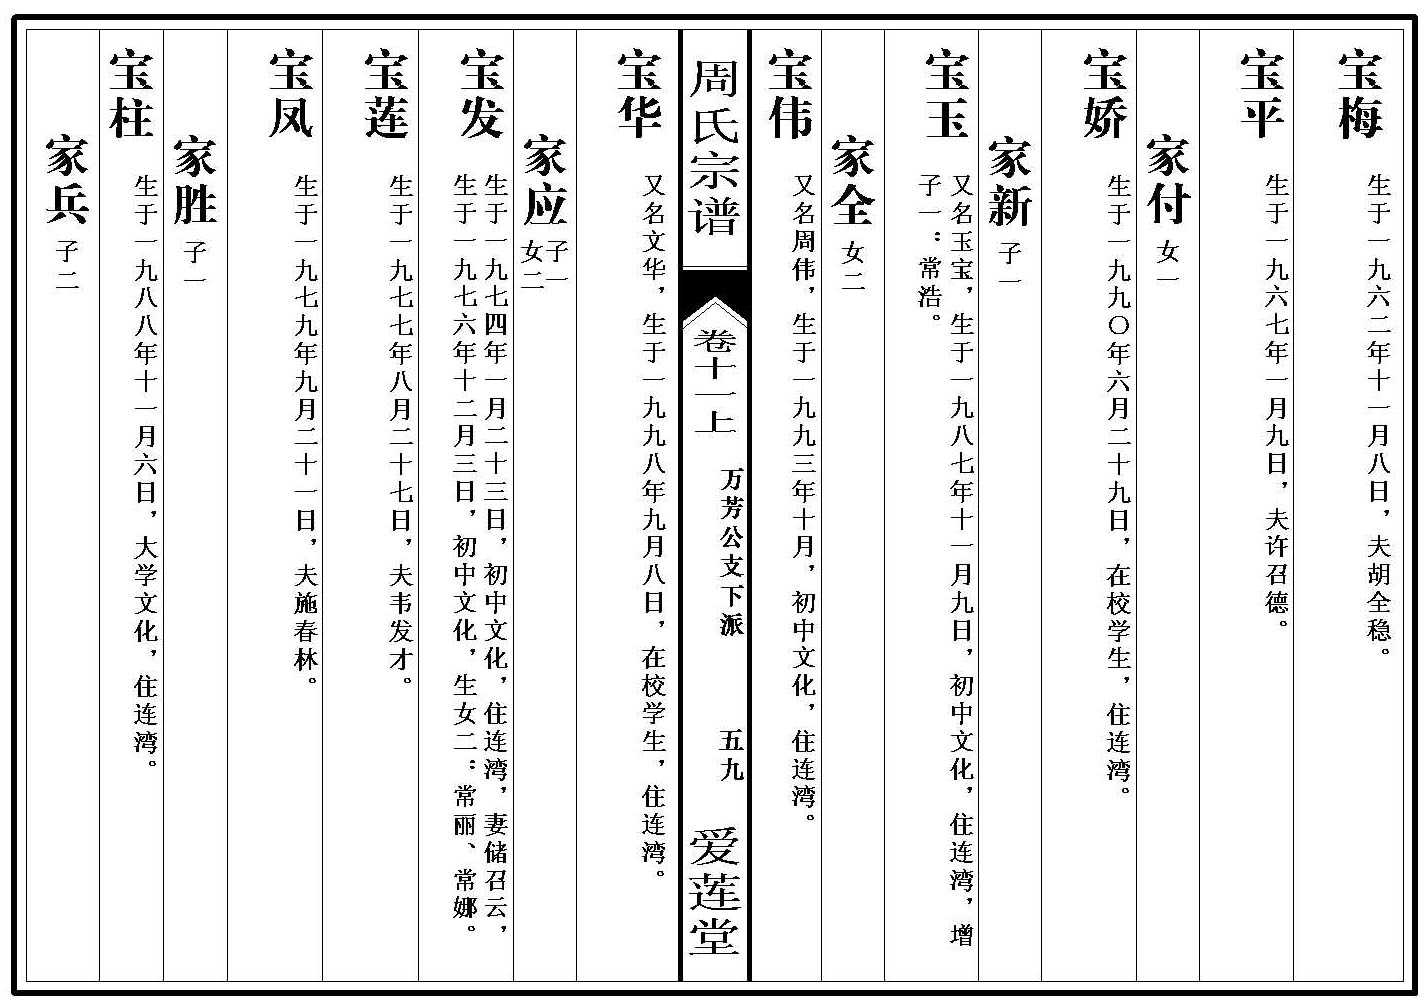 宝梅
生于一九六二年十一月八日，夫胡全稳。
宝平
生于一九六七年一月九日，夫许召德。
家付
女一
宝娇
生于一九九〇年六月二十九日，在校学生，住连湾。
家新
子一
宝玉
又名玉宝，生于一九八七年十一月九日，初中文化，住连湾，增
子一：常浩。
家全
女二
宝伟
又名周伟，生于一九九三年十月，初中文化，住连湾。
周氏宗谱
卷十一上
万芳公支下派
五九
爱莲堂
宝华
又名文华，生于一九九八年九月八日，在校学生，住连湾。
家应
子一
女二
宝发
生于一九七四年一月二十三日，初中文化，住连湾，妻储召云，
生于一九七六年十二月三日，初中文化，生女二：常丽、常娜。
宝莲
生于一九七七年八月二十七日，夫韦发才。
宝凤
生于一九七九年九月二十一日，夫施春林。
家胜
子一
宝柱
生于一九八八年十一月六日，大学文化，住连湾。
家兵
子二